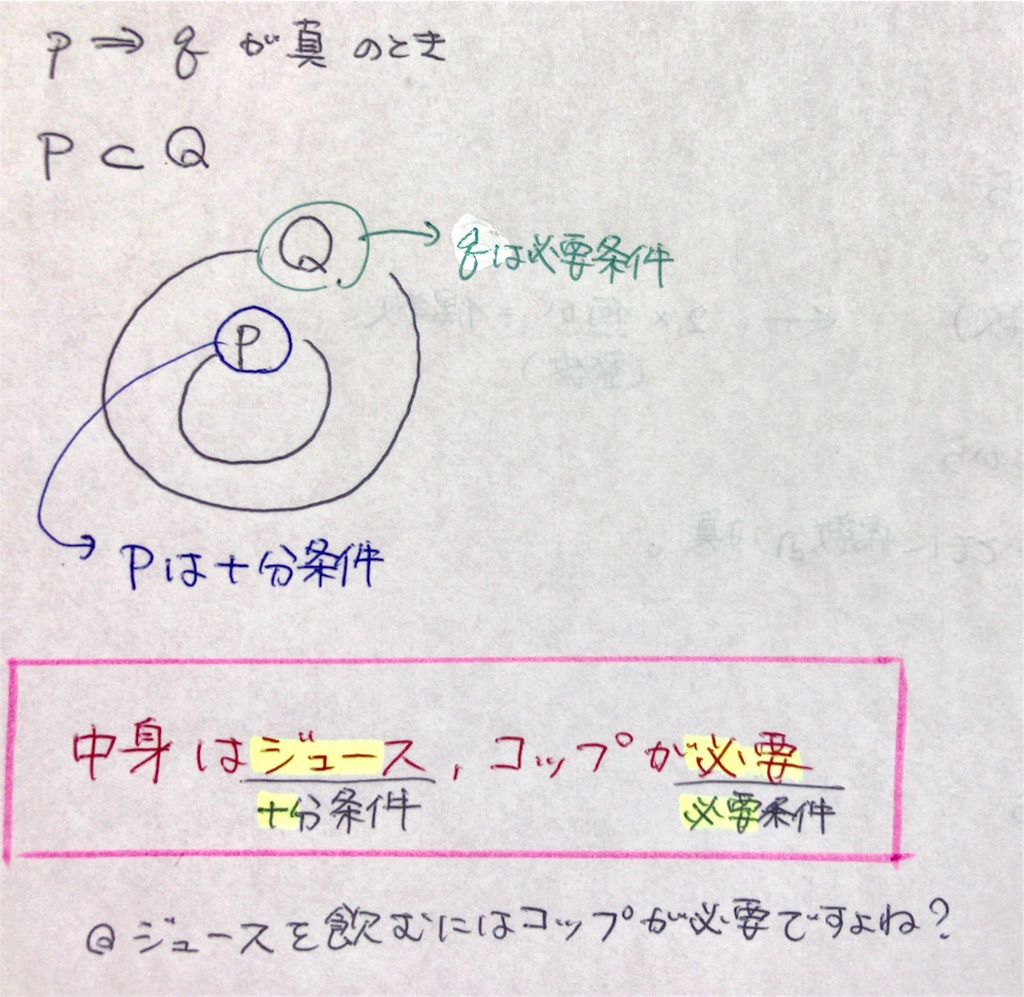 p ⇒ q が真のとき
P ⊂ Q
Q
qは必要条件
P
Pは十分条件
中身はジュース, コップが必要
十分条件 必要条件
@ ジュースを飲むにはコップが必要ですよね?